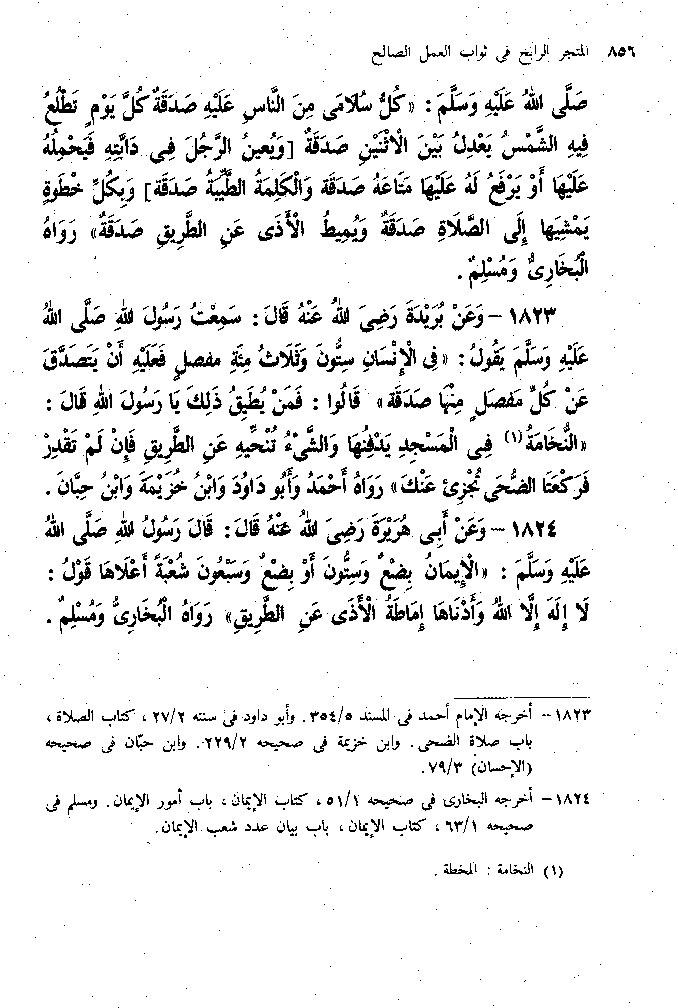 ٨٥٦ المتجر الرابح فى ثواب العمل الصالح
صَلَّى اللهُ عَلَيْهِ وَسَلَّمَ : «كُلُّ سُلَامَى مِنَ النَّاسِ عَلَيْهِ صَدَقَةٌ كُلَّ يَوْمٍ تَطْلُعُ
فِيهِ الشَّمْسُ يَعْدِلُ بَيْنَ الْاثْنَيْنِ صَدَقَةٌ [وَيُعينُ الرَّجُلَ فِى دَابَّتِهِ فَيَحْمِلُهُ
عَلَيْهَا أَوْ يَرْفَعُ لَهُ عَلَيْهَا مَتَاعَهُ صَدَقَة وَالْكَلِمَةُ الطَّيِّبَةُ صَدَقَة] وَبِكُلِّ خطْوَةٍ
يَمْشِيهَا إِلَى الصَّلَاةِ صَدَقَةٌ وَيُمِيطُ الْأَذَى عَنِ الطَّرِيقِ صَدَقَةٌ» رَوَاهُ
الْبُخَارِىُّ وَمُسْلِمٌ .
١٨٢٣ – وَعَنْ بُرَيْدَةَ رَضِىَ اللهُ عَنْهُ قَالَ : سَمِعْتُ رَسُولَ اللهِ صَلَّى اللهُ
عَلَيْهِ وَسَلَّمَ يَقُولُ : «فِى الْإِنْسَانِ سِتُّونَ وَثَلَاثُ مِئَةِ مفصلٍ فَعَلَيْهِ أَنْ يَتَصَدَّقَ
عَنْ كُلِّ مَفصَلٍ مِنْهَا صَدَقَة» قَالُوا : فَمَنْ يُطِيقُ ذَلِكَ يَا رَسُولَ اللهِ قَالَ :
«النُّخَامَةُ (١) فِى الْمَسْجِدِ يَدْفِنُهَا وَالشَّىْءُ تُنَحِّيهِ عَنِ الطَّرِيقِ فَإِنْ لَمْ تَقْدِرْ
فَرَكْعَتَا الضُّحَى تُجْزِئُ عَنْكَ» رَوَاهُ أَحْمَدُ وَأَبُو دَاوُدَ وَابْنُ خُزَيْمَةَ وَابْنُ حِبَّانَ .
١٨٢٤ – وَعَنْ أَبِى هُرَيْرَةَ رَضِىَ اللهُ عَنْهُ قَالَ : قَالَ رَسُولُ اللهِ صَلَّى اللهُ
عَلَيْهِ وَسَلَّمَ : «الْإِيمَانُ بِضْعٌ وَسِتُّونَ أَوْ بِضْعٌ وَسَبْعُونَ شُعْبَةً أَعْلَاهَا قَوْلُ :
لَا إِلَهَ إِلَّا اللهُ وَأَدْنَاهَا إِمَاطَةُ الْأَذَى عَنِ الطَّرِيقِ» رَوَاهُ الْبُخَارِىُّ وَمُسْلِمٌ .
١٨٢٣ – أخرجه الإمام أحمد فى المسند ٣٥٤/٥. وأبو داود فى سننه ٢٧/٢ ، كتاب الصلاة ،
باب صلاة الضحى. وابن خزيمة فى صحيحه ٢٢٩/٢. وابن حبّان فى صحيحه
(الإحسان) ٧٩/٣.
١٨٢٤ – أخرجه البخارى فى صحيحه ٥١/١ ، كتاب الإيمان ، باب أمور الإيمان. ومسلم فى
صحيحه ٦٣/١ ، كتاب الإيمان ، باب بيان عدد شعب الإيمان.
(١) النخامة : المخطة .